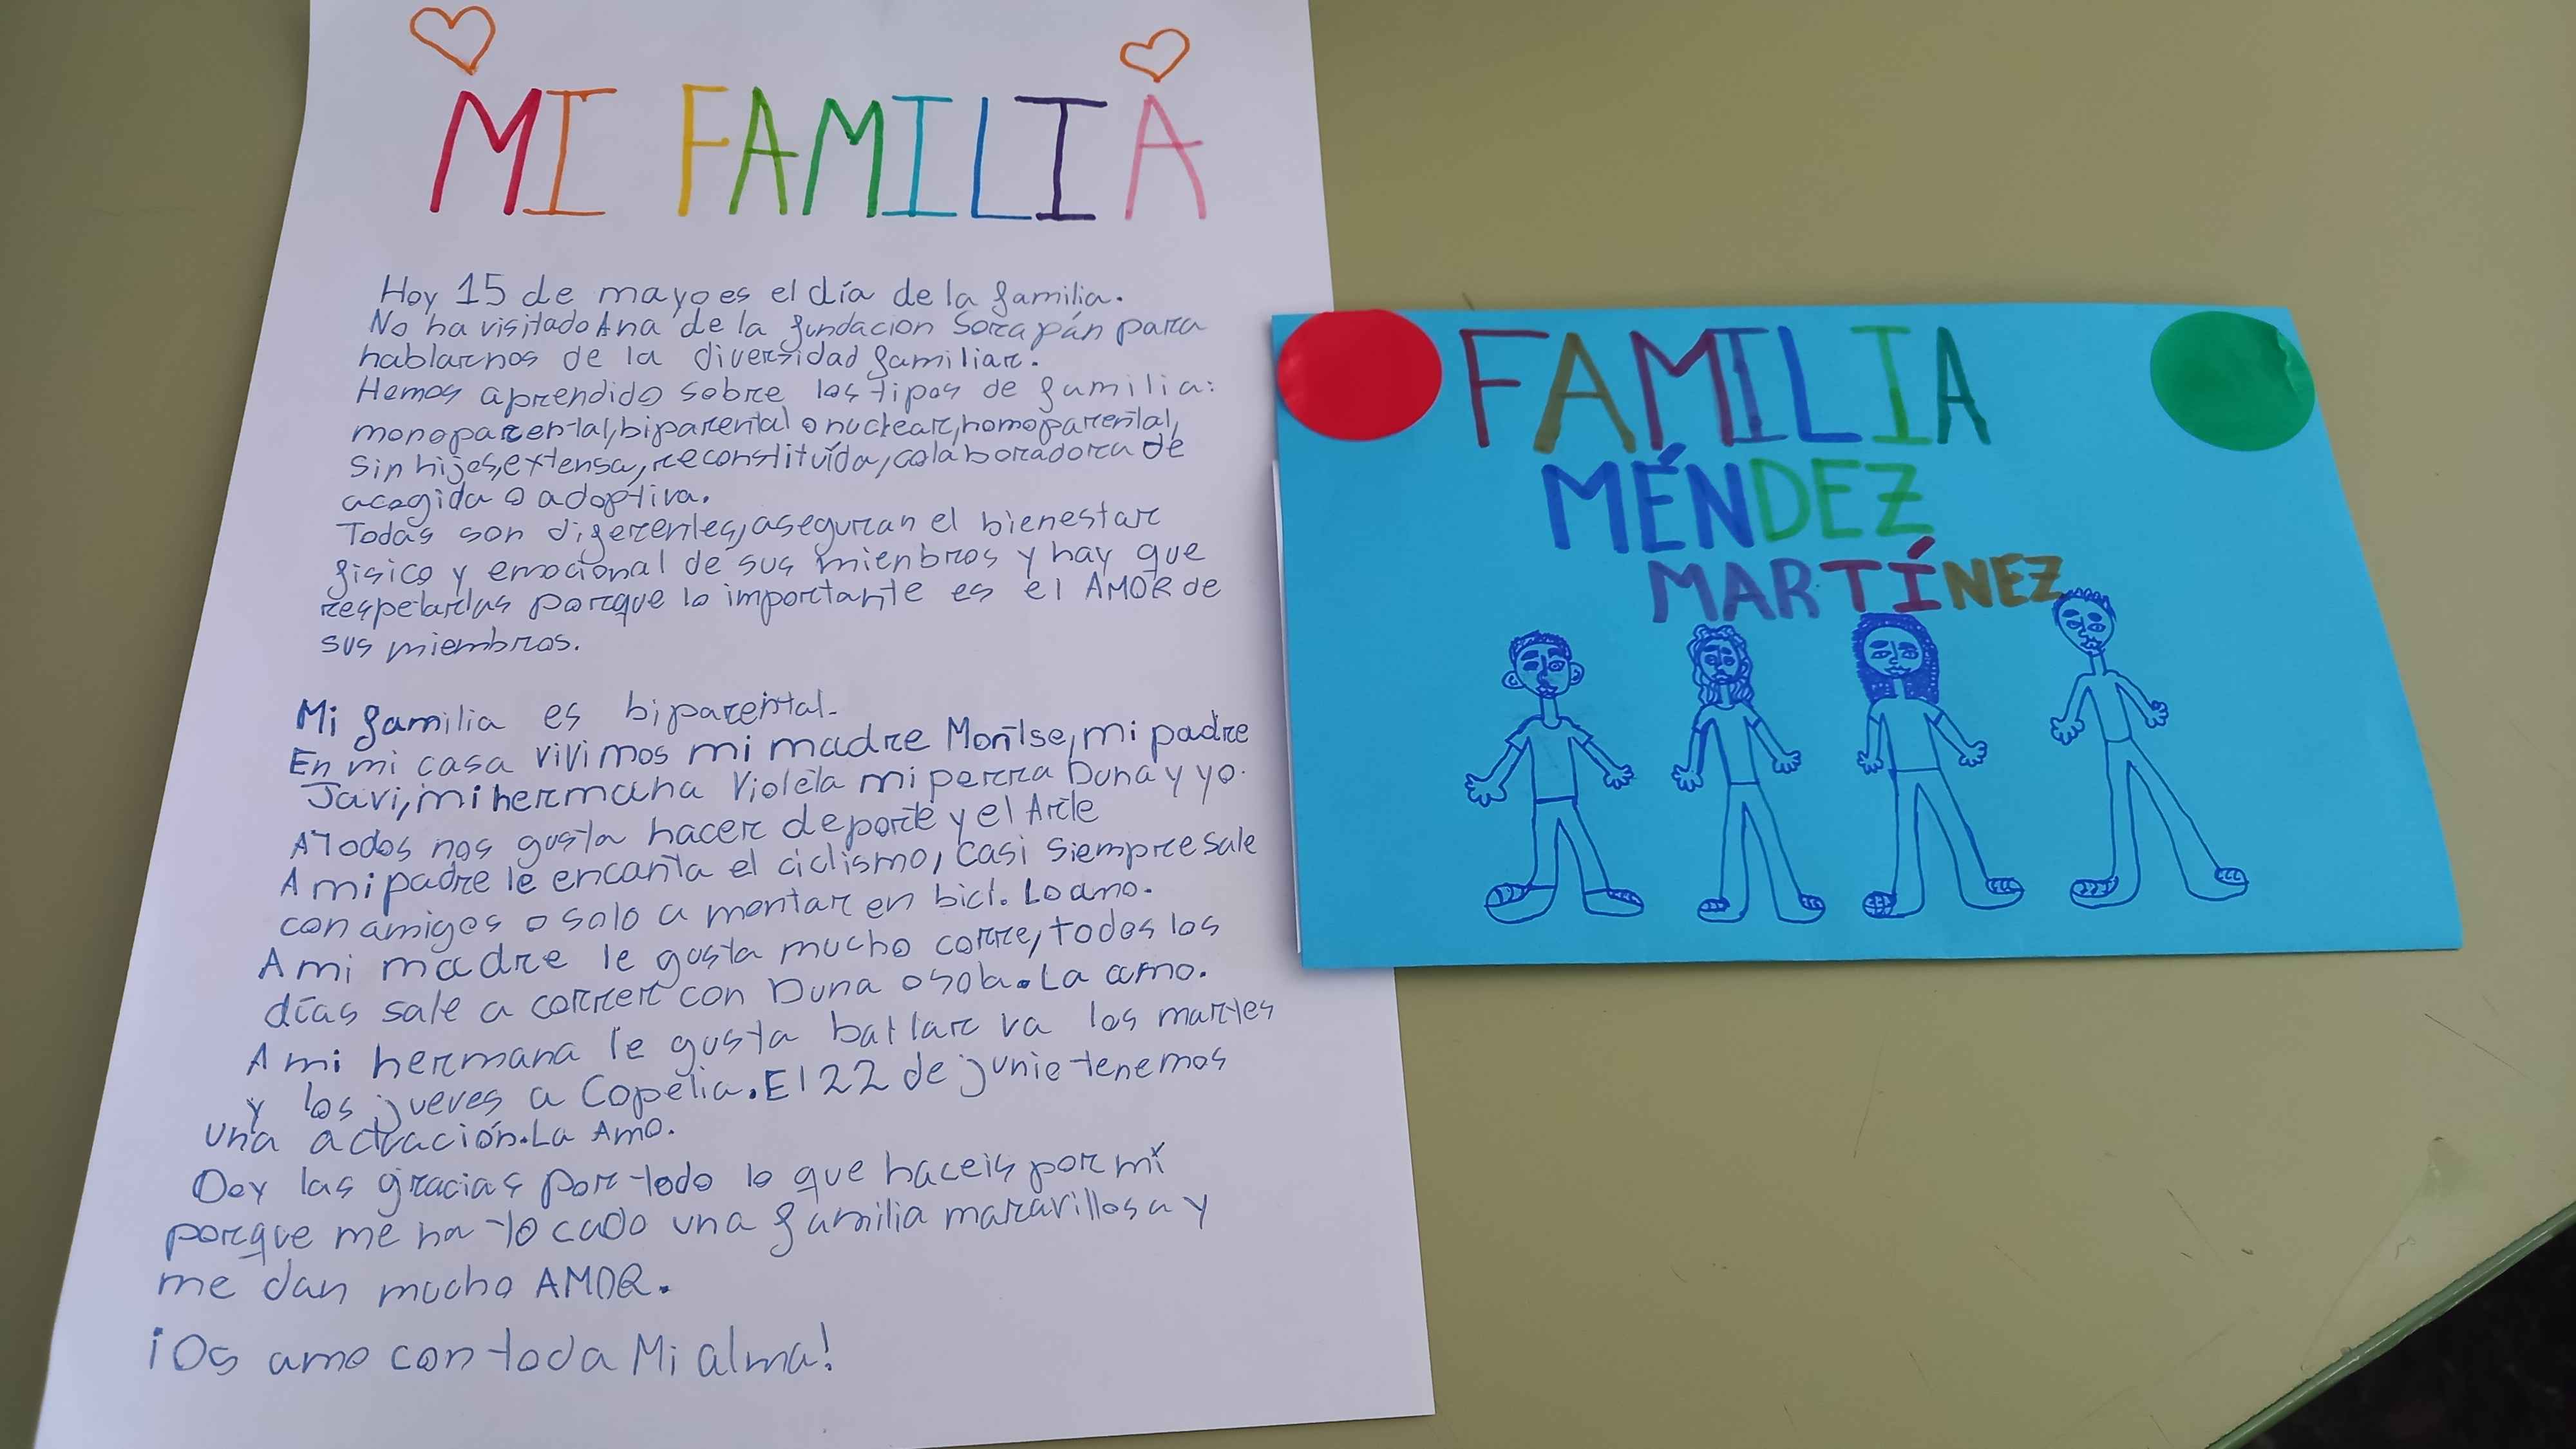 MI FAMILIA
Hoy 15 de mayo es el día de la familia.
No ha visitado Ana de la fundacion Sorapán para
hablarnos de la diversidad familiar.
Hemos aprendido sobre los tipos de familia:
monoparental, biparental o nuclear, homoparental,
sin hijos, extensa, reconstituída, colaboradora de
acogida o adoptiva.
Todas son diferentes, aseguran el bienestar
fisico y emocional de sus mienbros y hay que
respetarlas porque lo importante es el AMOR de
sus miembros.
Mi familia es biparental.
En mi casa vivimos mi madre Montse, mi padre
Javi, mi hermana Violeta mi perra Duna y yo.
A Todos nos gusta hacer deporte y el Arte
A mi padre le encanta el ciclismo, casi siempre sale
con amigos o solo a montar en bici. Lo amo.
A mi madre le gusta mucho corre, todos los
días sale a correr con Duna o sola. La amo.
A mi hermana le gusta bailar va los martes
y los jueves a Copelia. El 22 de junio tenemos
una actuación. La Amo.
Doy las gracias por todo lo que haceis por mí
porque me ha tocado una familia maravillosa y
me dan mucho AMOR.
¡Os amo con toda Mi alma!
FAMILIA
MÉNDEZ
MARTÍNEZ